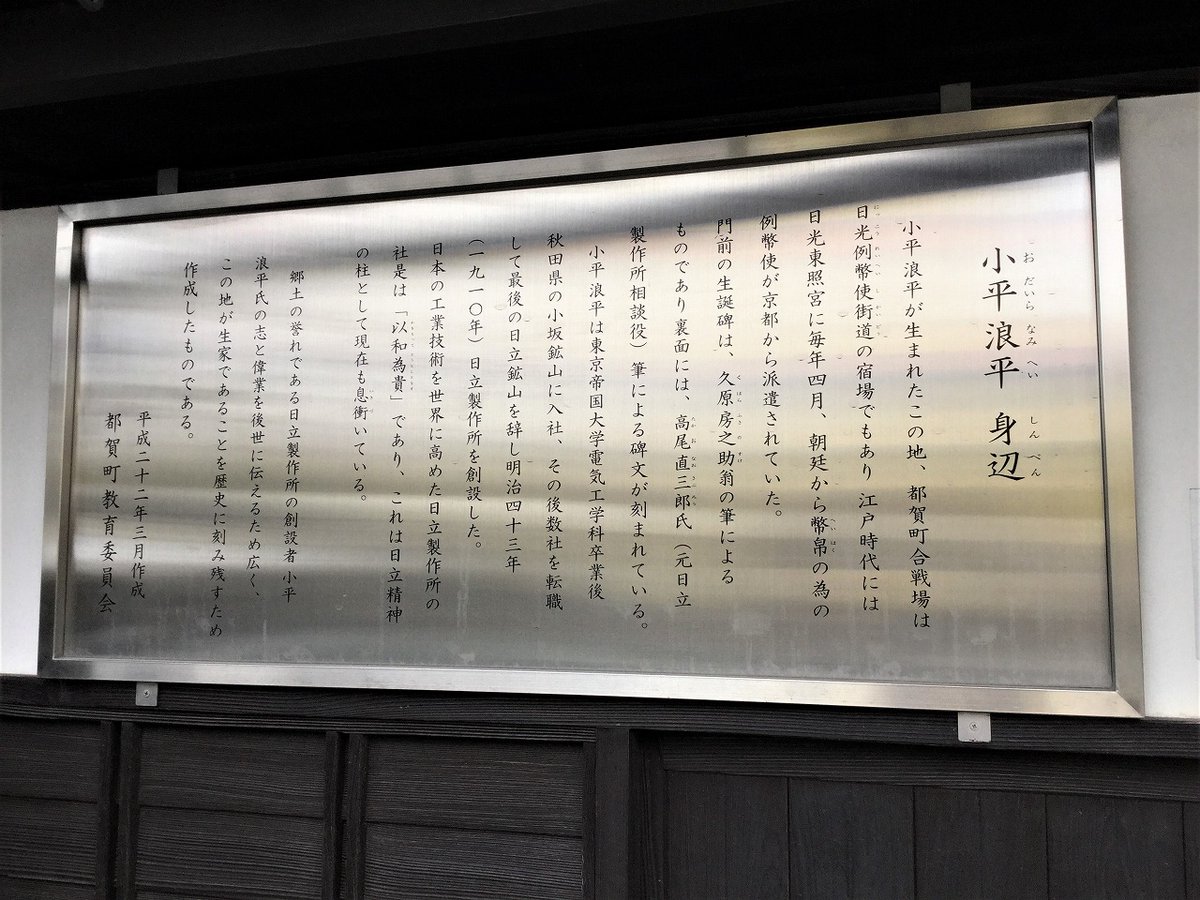 小平浪平 身辺
小平浪平が生まれたこの地、都賀町合戦場は
日光例幣使街道の宿場でもあり江戸時代には
日光東照宮に毎年四月、朝廷から幣帛の為の
例幣使が京都から派遣されていた。
門前の生誕碑は、久原房之助翁の筆による
ものであり裏面には、高尾直三郎氏（元日立
製作所相談役）筆による碑文が刻まれている。
小平浪平は東京帝国大学電気工学科卒業後
秋田県の小坂鉱山に入社、その後数社を転職
して最後の日立鉱山を辞し明治四十三年
（一九一〇年）日立製作所を創設した。
日本の工業技術を世界に高めた日立製作所の
社是は「以和為貴」であり、これは日立精神
の柱として現在も息衝いている。
郷土の誉れである日立製作所の創設者小平
浪平氏の志と偉業を後世に伝えるため広く、
この地が生家であることを歴史に刻み残すため
作成したものである。
平成二十二年三月作成
都賀町教育委員会